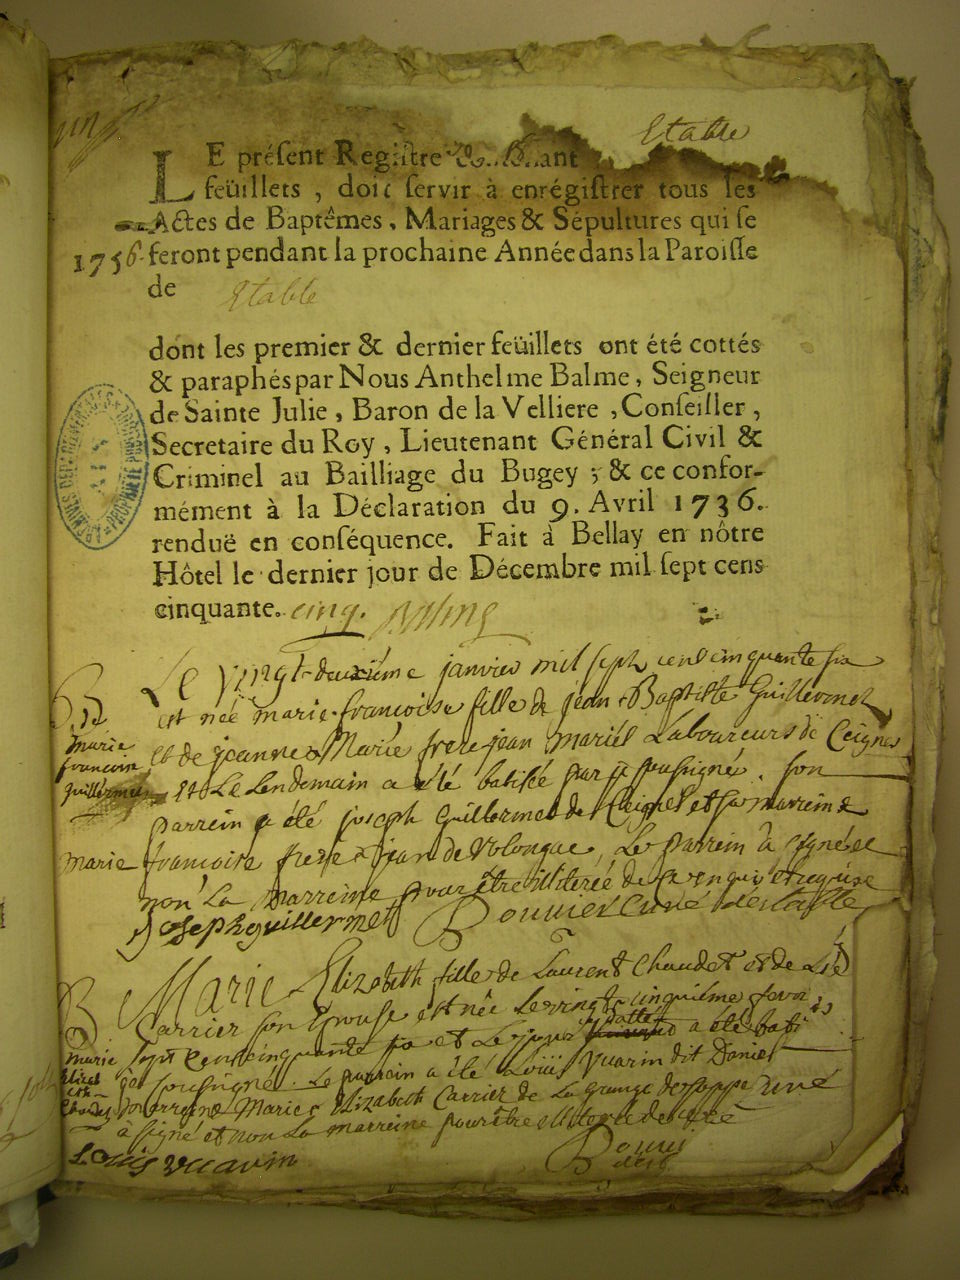 Etable
LE présent Registre
feüillets, doit servir à enrégistrer tous les
Actes de Baptêmes, Mariages & Sépultures qui se
1756. feront pendant la prochaine Année dans la Paroisse
de Etable
dont les premier & dernier feüillets ont été cottés
& paraphés par Nous Anthelme Balme, Seigneur
de Sainte Julie, Baron de la Velliere, Conseiller,
Secretaire du Roy, Lieutenant Général Civil &
Criminel au Bailliage du Bugey ; & ce confor-
mément à la Déclaration du 9. Avril 1736.
renduë en conséquence. Fait à Bellay en nôtre
Hôtel le dernier jour de Décembre mil sept cens
cinquante. cinq.
Le vingt-deuxième janvier mil sept cent cinquante six
est née marie françoise fille de jean Baptiste Guillermet
et de jeanne Marie frere jean mariés Laboureurs de Ceignes
et Le Lendemain a été batisée par je soussigné. son
parrein a été joseph Guillermet de Ceignes et sa marreine
marie françoise frere jean de Volongue, Le parrein à signé et
non La marreine pour être illiterée de ce enquise
B
marie
françoise
guillermet
joseph guillermet Bouvier curé
Marie Elizabeth fille de Laurent Chaudet et de
Carrier son Epouse est née Le vingt cinquième
sept cent cinquante six et Le jour a été
je soussigné. Le parrein a été Loüis Vuarin dit
marreine Marie Elizabeth Carrier de La grange
à signé et non La marreine pour être illiterée de
B
Marie
Elizabeth
Chaudet
Louis vuarin